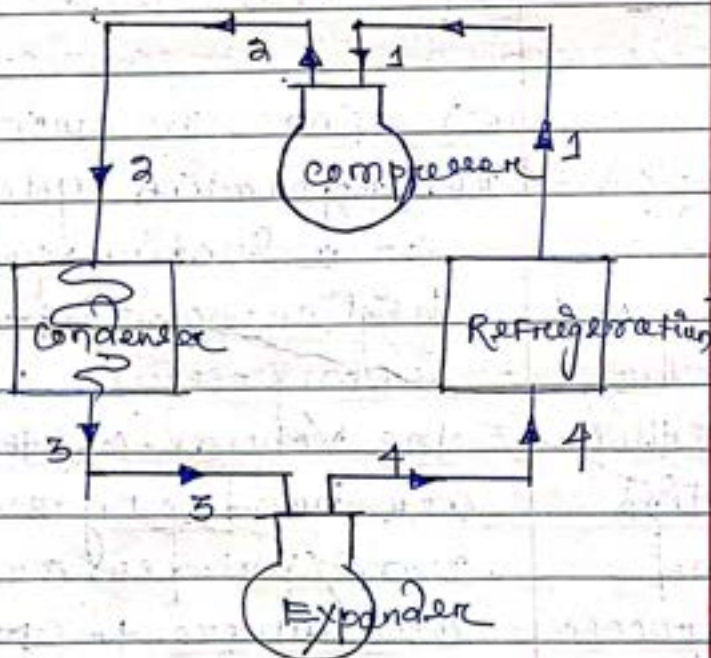 2 1
2 1
compressor
Condensor
Refrigeration
3 4 4
3
Expander